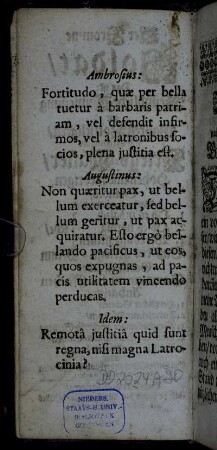 Ambrosius:
Fortitudo, quæ per bella
tuetur à barbaris patri-
am, vel defendit infir-
mos, vel à latronibus so-
cios, plena justitia est.
Augustinus:
Non quæritur pax, ut bel-
lum exerceatur, sed bel-
lum geritur, ut pax ac-
quiratur. Esto ergò bel-
lando pacificus, ut eos,
quos expugnas, ad pa-
cis utilitatem vincendo
perducas.
Idem:
Remotâ justitiâ quid sunt
regna, nisi magna Latro-
cinia?
NIEDERS.
STAATS-U. UNIV.-
BIBLIOTHEK
GÖTTINGEN